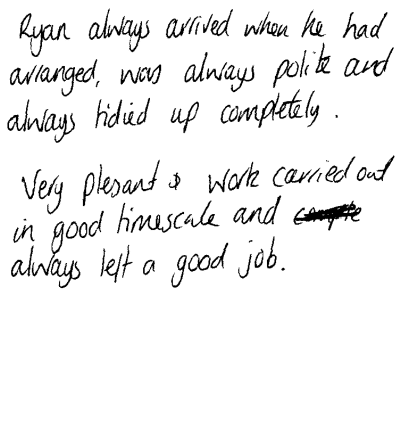 Ryan always arrived when he had
arranged, was always polite and
always tidied up completely.
Very plesant & work carried out
in good timescale and
always left a good job.